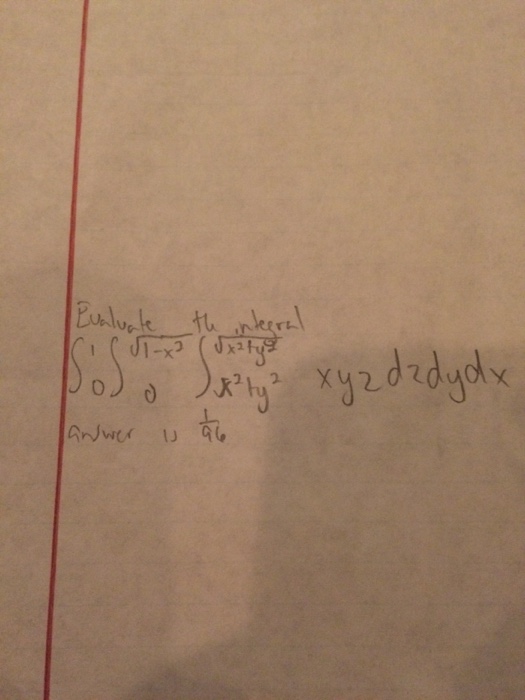 Evaluate th integral
∫₀¹ ∫₀^√(1-x²) ∫_{x²+y²}^{√(x²+y²)} xyz dzdydx
answer is 1/96